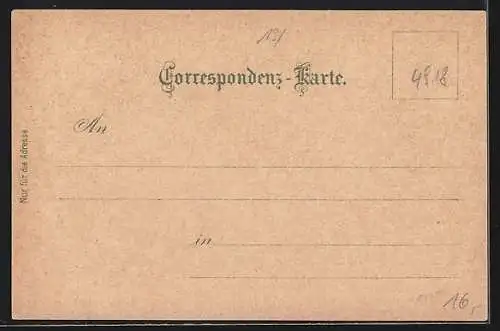 Correspondenz-Karte.
4818
An
Nur für die Adresse
in
16,